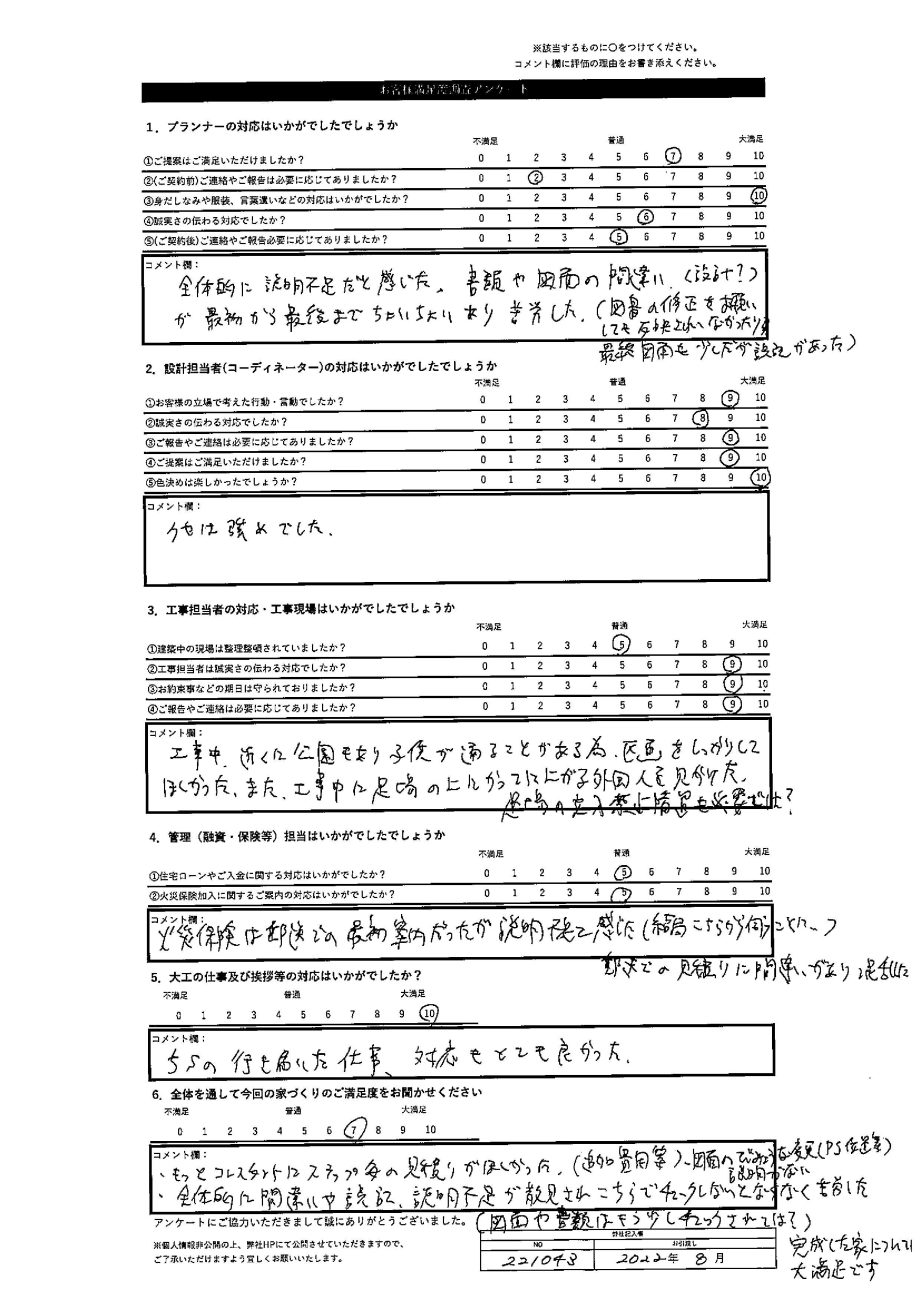 ※該当するものに〇をつけてください。
コメント欄に評価の理由をお書き添えください。
お客様満足度調査アンケート
1．プランナーの対応はいかがでしたでしょうか
不満足 普通 大満足
①ご提案はご満足いただけましたか？ 0 1 2 3 4 5 6 7 8 9 10
②(ご契約前)ご連絡やご報告は必要に応じてありましたか？ 0 1 2 3 4 5 6 7 8 9 10
③身だしなみや服装、言葉遣いなどの対応はいかがでしたか？ 0 1 2 3 4 5 6 7 8 9 10
④誠実さの伝わる対応でしたか？ 0 1 2 3 4 5 6 7 8 9 10
⑤(ご契約後)ご連絡やご報告必要に応じてありましたか？ 0 1 2 3 4 5 6 7 8 9 10
コメント欄：
全体的に説明不足だと感じた。書類や図面の間違い（設計？）
が最初から最後までちょいちょいあり苦労した。（図番の修正をお願い
しても反映されていなかったり
最終図面も少しだが誤記があった）
2．設計担当者(コーディネーター)の対応はいかがでしたでしょうか
不満足 普通 大満足
①お客様の立場で考えた行動・言動でしたか？ 0 1 2 3 4 5 6 7 8 9 10
②誠実さの伝わる対応でしたか？ 0 1 2 3 4 5 6 7 8 9 10
③ご報告やご連絡は必要に応じてありましたか？ 0 1 2 3 4 5 6 7 8 9 10
④ご提案はご満足いただけましたか？ 0 1 2 3 4 5 6 7 8 9 10
⑤色決めは楽しかったでしょうか？ 0 1 2 3 4 5 6 7 8 9 10
コメント欄：
クセは強めでした。
3．工事担当者の対応・工事現場はいかがでしたでしょうか
不満足 普通 大満足
①建築中の現場は整理整頓されていましたか？ 0 1 2 3 4 5 6 7 8 9 10
②工事担当者は誠実さの伝わる対応でしたか？ 0 1 2 3 4 5 6 7 8 9 10
③お約束事などの期日は守られておりましたか？ 0 1 2 3 4 5 6 7 8 9 10
④ご報告やご連絡は必要に応じてありましたか？ 0 1 2 3 4 5 6 7 8 9 10
コメント欄：
工事中、近くに公園もあり子供が通ることがある為、区画をしっかりして
ほしかった、また、工事中に足場の上にかってに上がる外国人を見かけた。
足場の立入禁止措置も必要では？
4．管理（融資・保険等）担当はいかがでしたでしょうか
不満足 普通 大満足
①住宅ローンやご入金に関する対応はいかがでしたか？ 0 1 2 3 4 5 6 7 8 9 10
②火災保険加入に関するご案内の対応はいかがでしたか？ 0 1 2 3 4 5 6 7 8 9 10
コメント欄：
火災保険は郵送での最初案内だったが説明不足で感じた（結局こちらから伺うことに…）
郵送での見積りに間違いがあり混乱した
5．大工の仕事及び挨拶等の対応はいかがでしたか？
不満足 普通 大満足
0 1 2 3 4 5 6 7 8 9 10
コメント欄：
5Sの行き届いた仕事、対応もとても良かった。
6．全体を通して今回の家づくりのご満足度をお聞かせください
不満足 普通 大満足
0 1 2 3 4 5 6 7 8 9 10
コメント欄：
・もっとコンスタントにステップ毎の見積りがほしかった。（追加費用等）、図面の な変更（PS位置等）
説明がない
・全体的に間違いや誤記、説明不足が散見されこちらでチェックしないとならなく苦労した
（図面や書類はもう少しチェックされては？）
アンケートにご協力いただきまして誠にありがとうございました。
※個人情報非公開の上、弊社HPにて公開させていただきますので、
ご了承いただけますよう宜しくお願いいたします。
弊社記入欄
NO お引渡し
221043 2022年 8月
完成した家については
大満足です